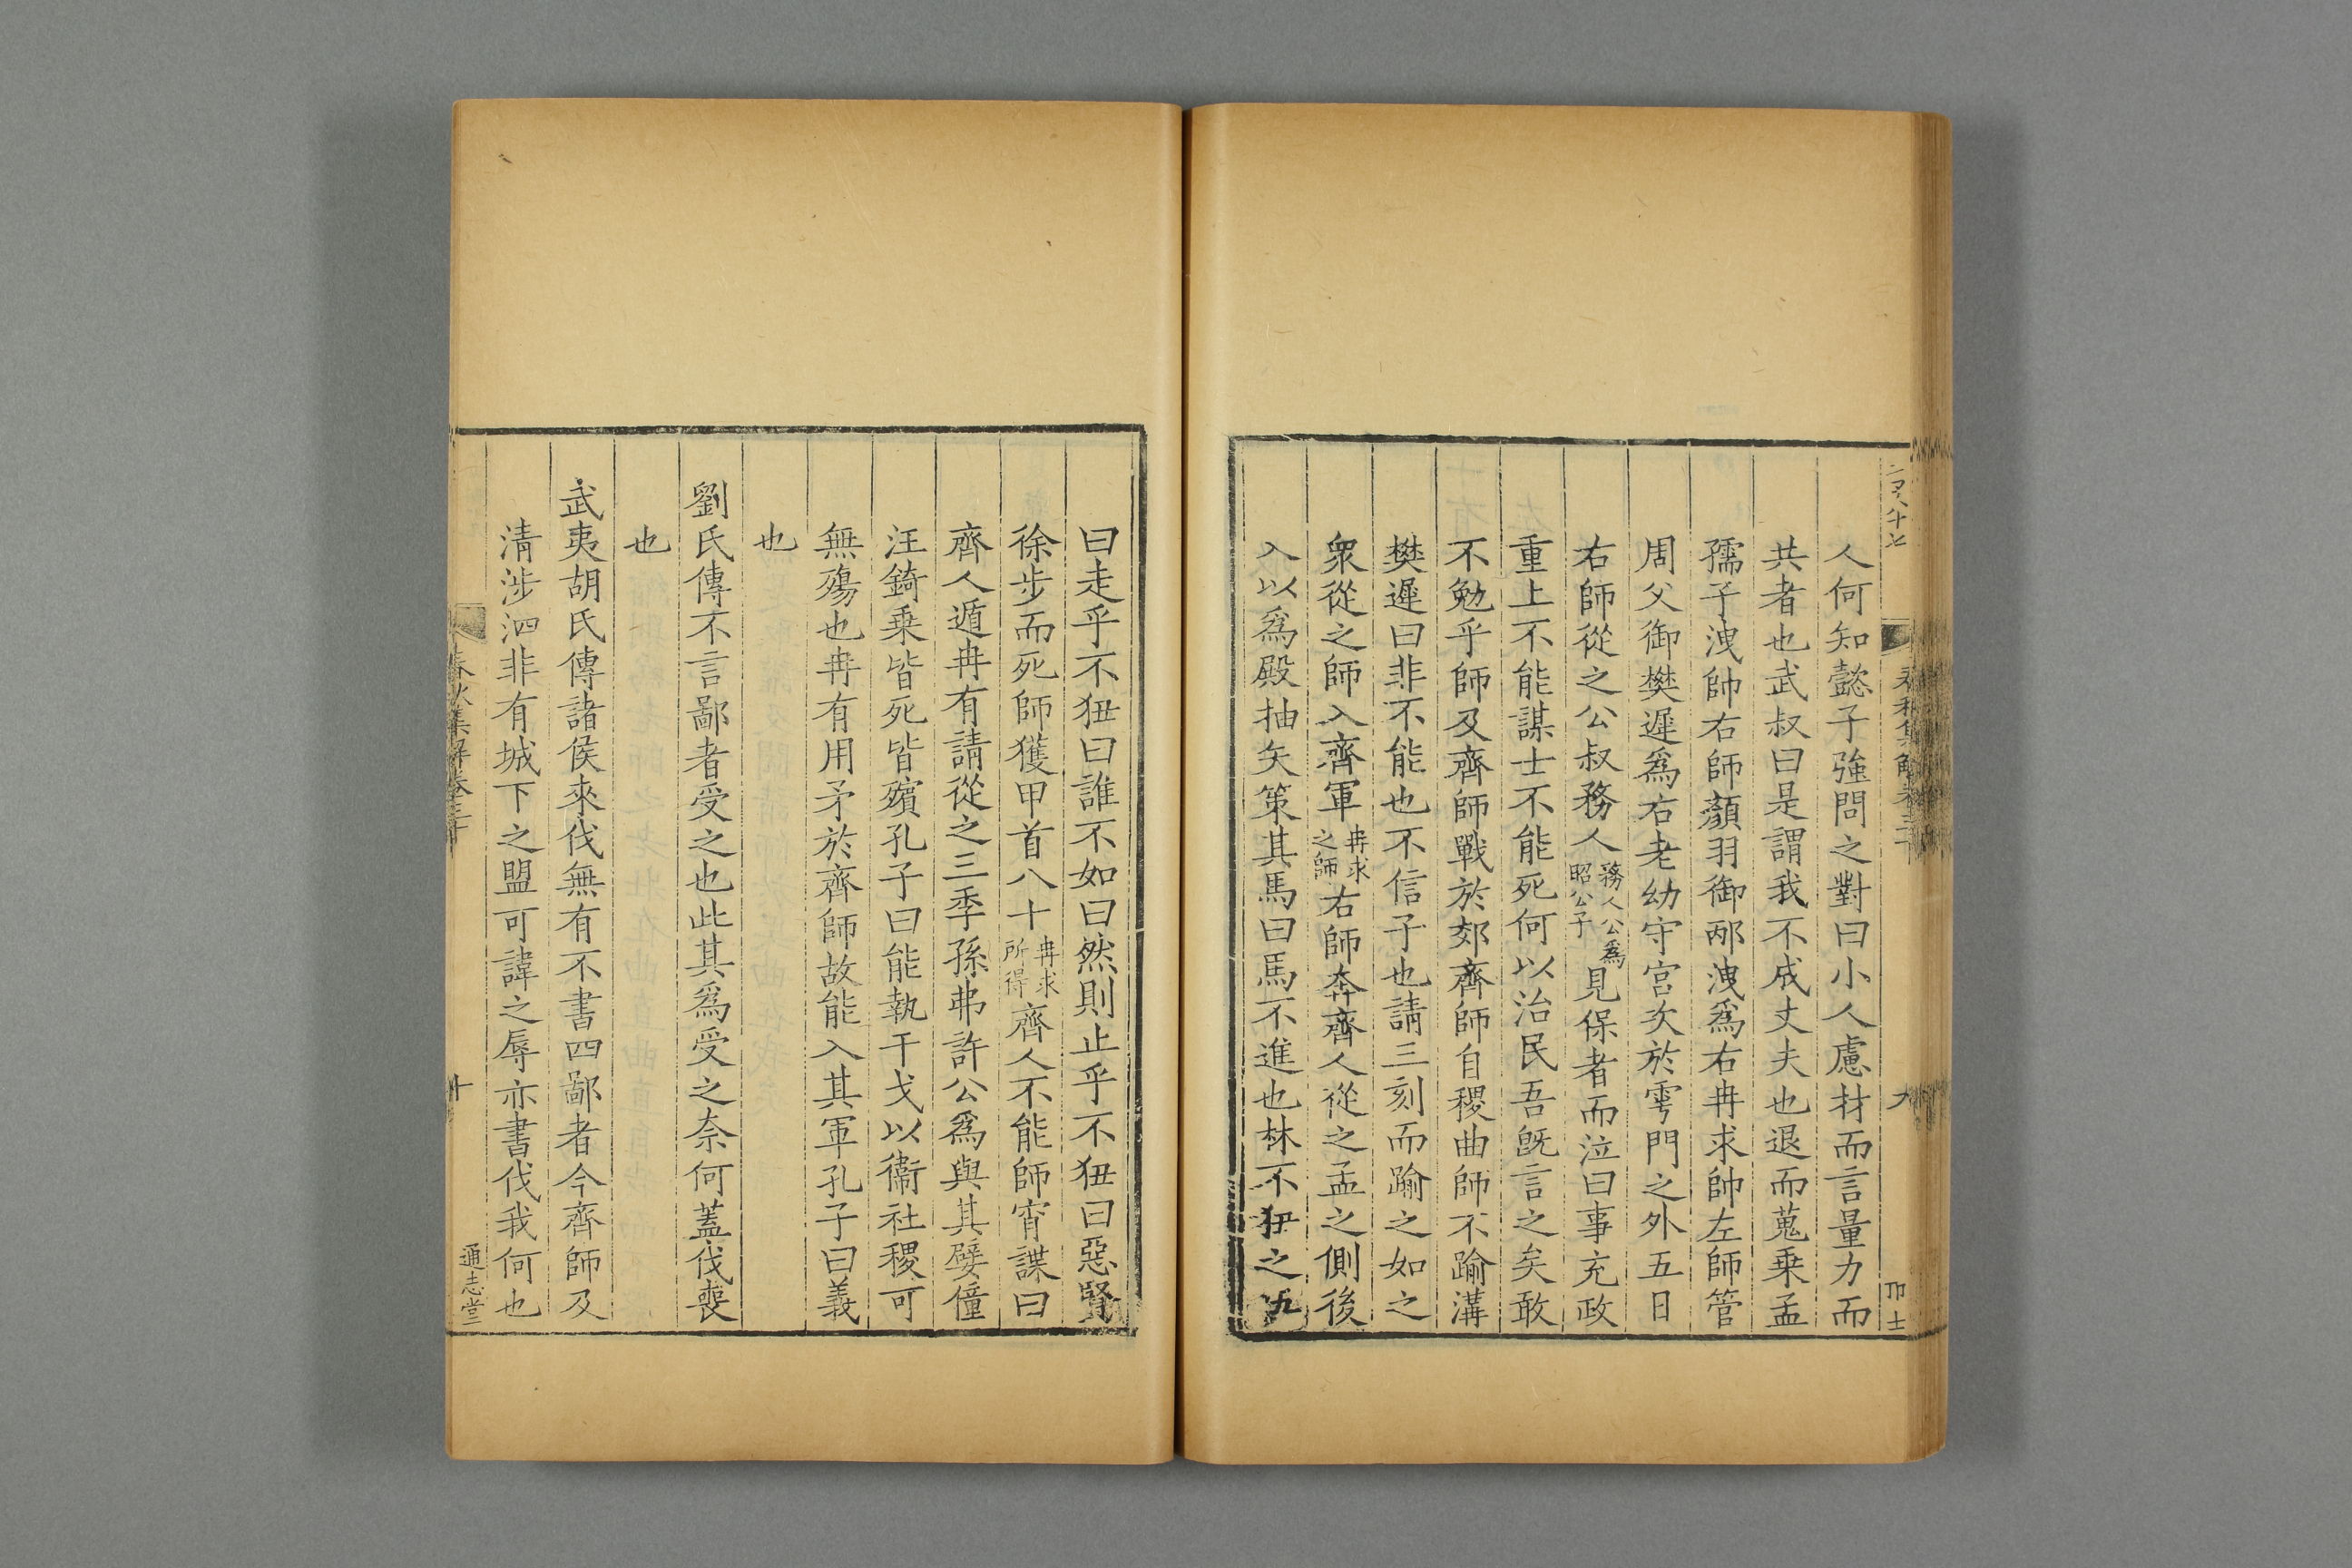 人何知懿子強問之對曰小人慮材而言量力而
共者也武叔曰是謂我不成丈夫也退而蒐乗孟
孺子洩帥右師顏羽御邴洩爲右冉求帥左師管
周父御樊遲爲右老幼守宮次於雩門之外五日
右師從之公叔務人務人公爲昭公子見保者而泣曰事充政
重上不能謀士不能死何以治民吾旣言之矣敢
不勉乎師及齊師戰於郊齊師自稷曲師不踰溝
樊遲曰非不能也不信子也請三刻而踰之如之
衆從之師入齊軍冉求之師右師奔齊人從之孟之側後
入以爲殿抽矢策其馬曰馬不進也林不狃之伍
曰走乎不狃曰誰不如曰然則止乎不狃曰惡賢
徐步而死師獲甲首八十冉求所得齊人不能師宵諜曰
齊人遁冉有請從之三季孫弗許公爲與其嬖僮
汪錡乗皆死皆殯孔子曰能執干戈以衞社稷可
無殤也冉有用矛於齊師故能入其軍孔子曰義
也
劉氏傳不言鄙者受之也此其爲受之奈何蓋伐喪
也
武夷胡氏傳諸侯來伐無有不書四鄙者今齊師及
清涉泗非有城下之盟可諱之辱亦書伐我何也
春秋集解卷三十
十
通志堂